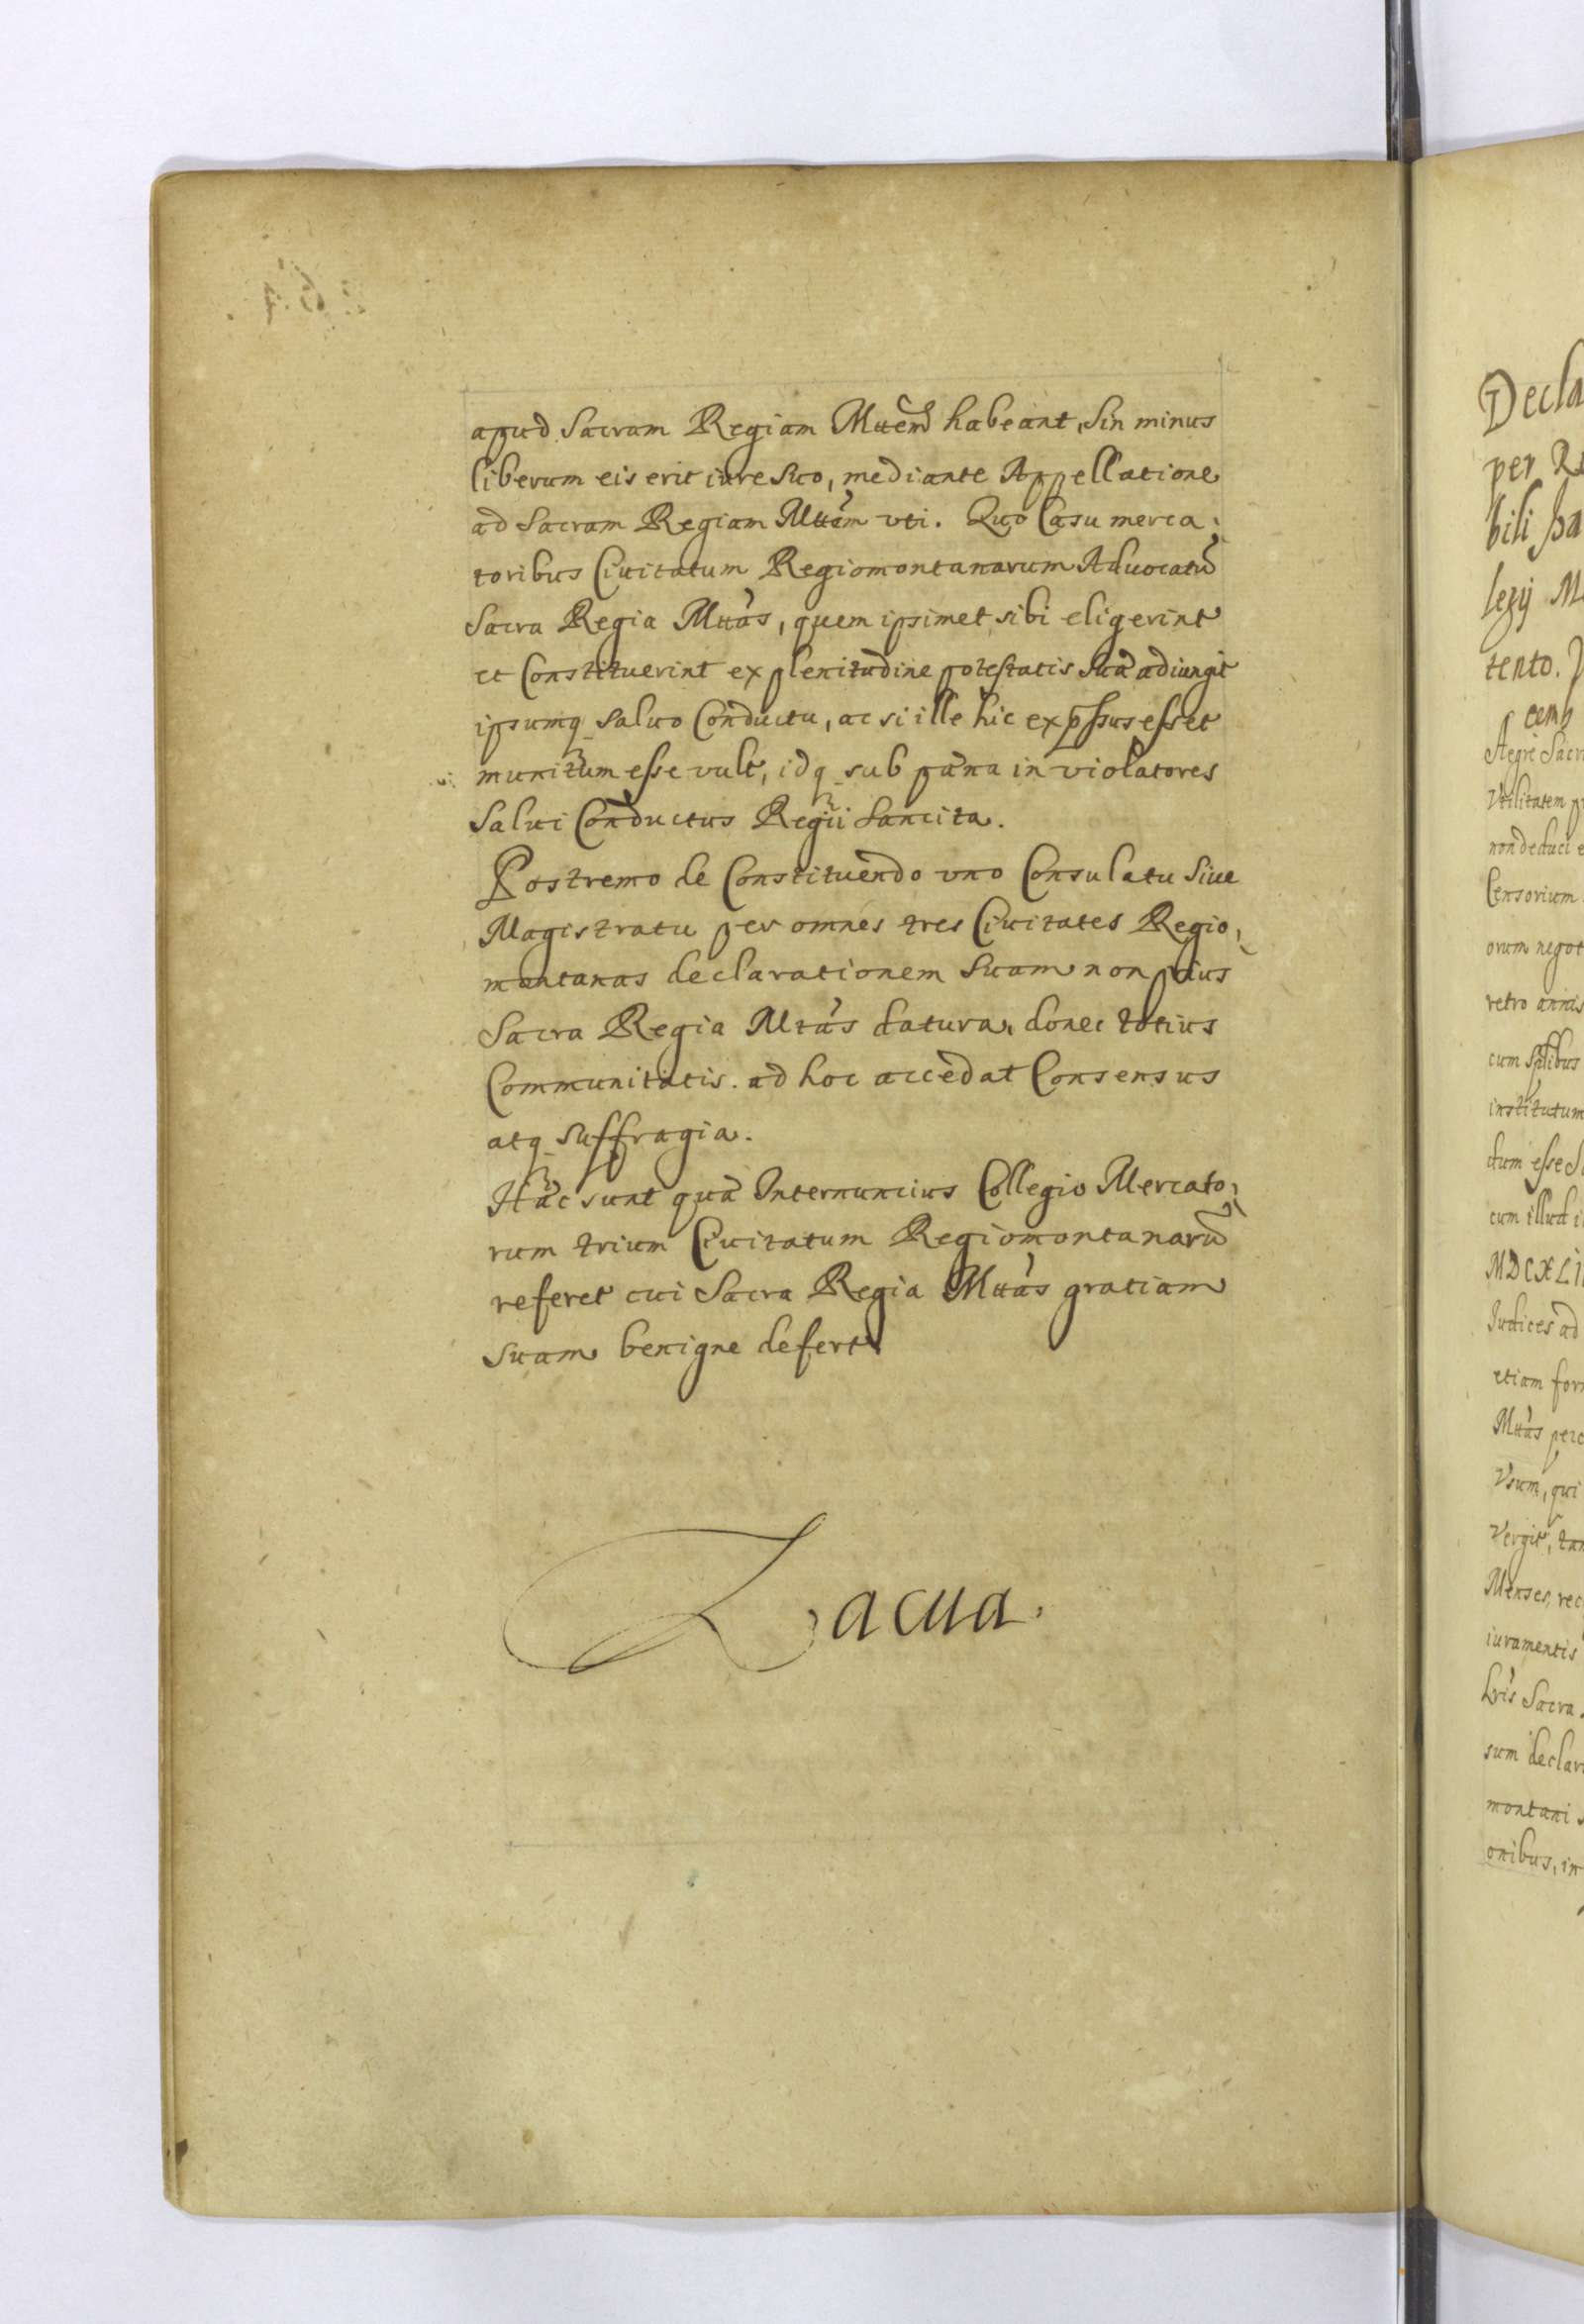 apud Sacram Regiam Mttem habeant, Sin minus
liberum eis erit iure suo, mediante Appellatione
ad Sacram Regiam Mttem vti. Quo Casu merca:
toribus Ciuitatum Regiomontanarum Aduocatũ
Sacra Regia Mttas, quem ipsimet sibi eligerint
et Constituerint ex plenitudine potestatis Sua adiungit
ipsumq saluo Conductu, ac si ille hic exp̄ssus esset
munitum esse vult, idq sub pæna in violatores
Salui Conductus Regii Sancita.
Postremo de Constituendo vno Consulatu Siue
Magistratu per omnes tres Ciuitates Regio:
montanas declarationem Suam non prius
Sacra Regia Mtas datura, donec totius
Communitatis ad hoc accedat Consensus
atq suffragia.
Hæc sunt quæ Internuncius Collegio Mercato:
rum trium Ciuitatum Regiomontanarũ
referet cui Sacra Regia Mttas gratiam
suam benigne defert.
Zacua.
Decla
per
bili
tento.
Aegre Sacr
Vtilitatem p
non deduci e
Censorium
orum negot
retro annis
cum
institutum
dum esse S
cum illud i
MDCXLI
Iudices ad
etiam for
Mttas perc
Vsum, qui
Vergit, tan
Menses, rec
iuramentis
Sacra
sum declar
montani s
onibus, in